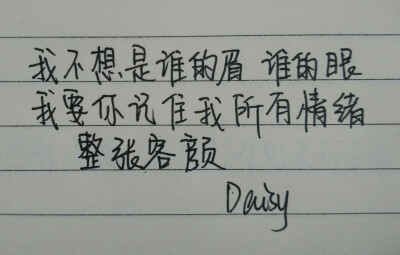 我不想是谁的眉 谁的眼
我要你记住我所有情绪
整张容颜
Daisy